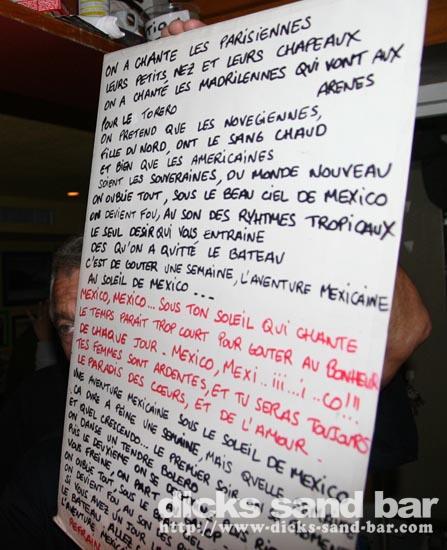 ON A CHANTE LES PARISIENNES
LEURS PETITS NEZ ET LEURS CHAPEAUX
ON A CHANTÉ LES MADRILENNES QUI VONT AUX
ARENES
POUR LE TORERO
ON PRETEND QUE LES NOVEGIENNES,
FILLE DU NORD, ONT LE SANG CHAUD
ET BIEN QUE LES AMERICAINES
SOIENT LES SOUVERAINES, DU MONDE NOUVEAU
ON OUBLIE TOUT, SOUS LE BEAU CIEL DE MEXICO
ON DEVIENT FOU, AU SON DES RYHTMES TROPICAUX
LE SEUL DESIR QUI VOUS ENTRAINE
DES QU'ON A QUITTÉ LE BATEAU
C'EST DE GOUTER UNE SEMAINE, L'AVENTURE MEXICAINE
AU SOLEIL DE MEXICO...
MEXICO, MEXICO... SOUS TON SOLEIL QUI CHANTE
LE TEMPS PARAIT TROP COURT POUR GOUTER AU BONHEUR
DE CHAQUE JOUR. MEXICO, MEXI..iii...i..CO!!!
TES FEMMES SONT ARDENTES, ET TU SERAS TOUJOURS
LE PARADIS DES CŒURS, ET DE L'AMOUR.
UNE AVENTURE MEXICAINE SOUS LE SOLEIL DE MEXICO
ÇA DURE A PEINE UNE SEMAINE, MAIS QUELLE
ET QUEL CRESCENDO... LE PREMIER SOIR ON
ON DANSE UN TENDRE BOLERO
PUIS LE DEUXIEME ON SE
VOUS FREINE, ON PART
ON OUBLIE TOUT SOUS LE
ON DEVIENT FOU AU SON
SI VOUS AVEZ UN JOUR
LE BATEAU, ALLEZ
AVENTURE MEXICAINE
REFRAIN
dicks sand bar
http://www.dicks-sand-bar.com